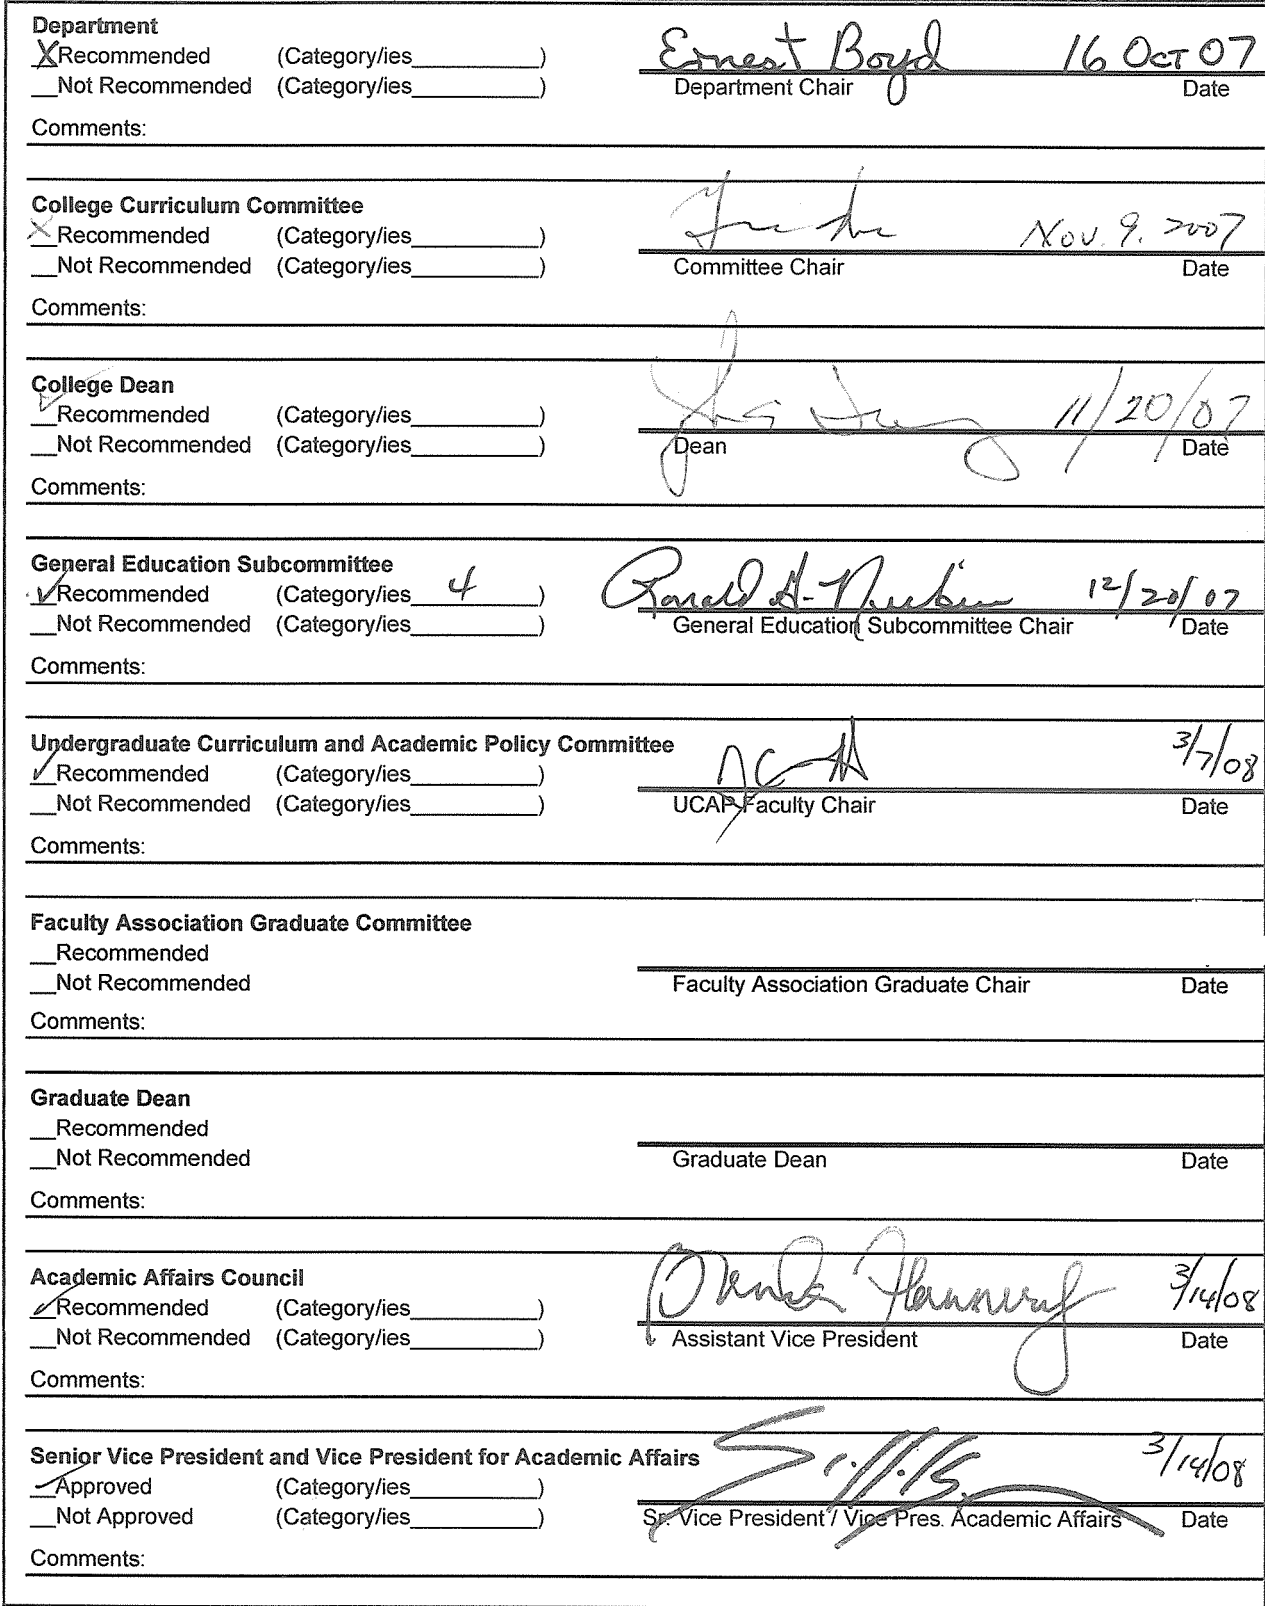 Department
X Recommended (Category/ies__________) Ernest Boyd 16 Oct 07
__Not Recommended (Category/ies__________) Department Chair Date
Comments:
College Curriculum Committee
X Recommended (Category/ies__________) Nov. 9. 2007
__Not Recommended (Category/ies__________) Committee Chair Date
Comments:
College Dean
✓ Recommended (Category/ies__________) 11/20/07
__Not Recommended (Category/ies__________) Dean Date
Comments:
General Education Subcommittee
✓ Recommended (Category/ies 4 ) Ronald A. 12/20/07
__Not Recommended (Category/ies__________) General Education Subcommittee Chair Date
Comments:
Undergraduate Curriculum and Academic Policy Committee
✓ Recommended (Category/ies__________) 3/7/08
__Not Recommended (Category/ies__________) UCAP Faculty Chair Date
Comments:
Faculty Association Graduate Committee
__Recommended
__Not Recommended Faculty Association Graduate Chair Date
Comments:
Graduate Dean
__Recommended
__Not Recommended Graduate Dean Date
Comments:
Academic Affairs Council
✓ Recommended (Category/ies__________) Brenda Flannery 3/14/08
__Not Recommended (Category/ies__________) Assistant Vice President Date
Comments:
Senior Vice President and Vice President for Academic Affairs
✓ Approved (Category/ies__________) 3/14/08
__Not Approved (Category/ies__________) Sr. Vice President / Vice Pres. Academic Affairs Date
Comments: